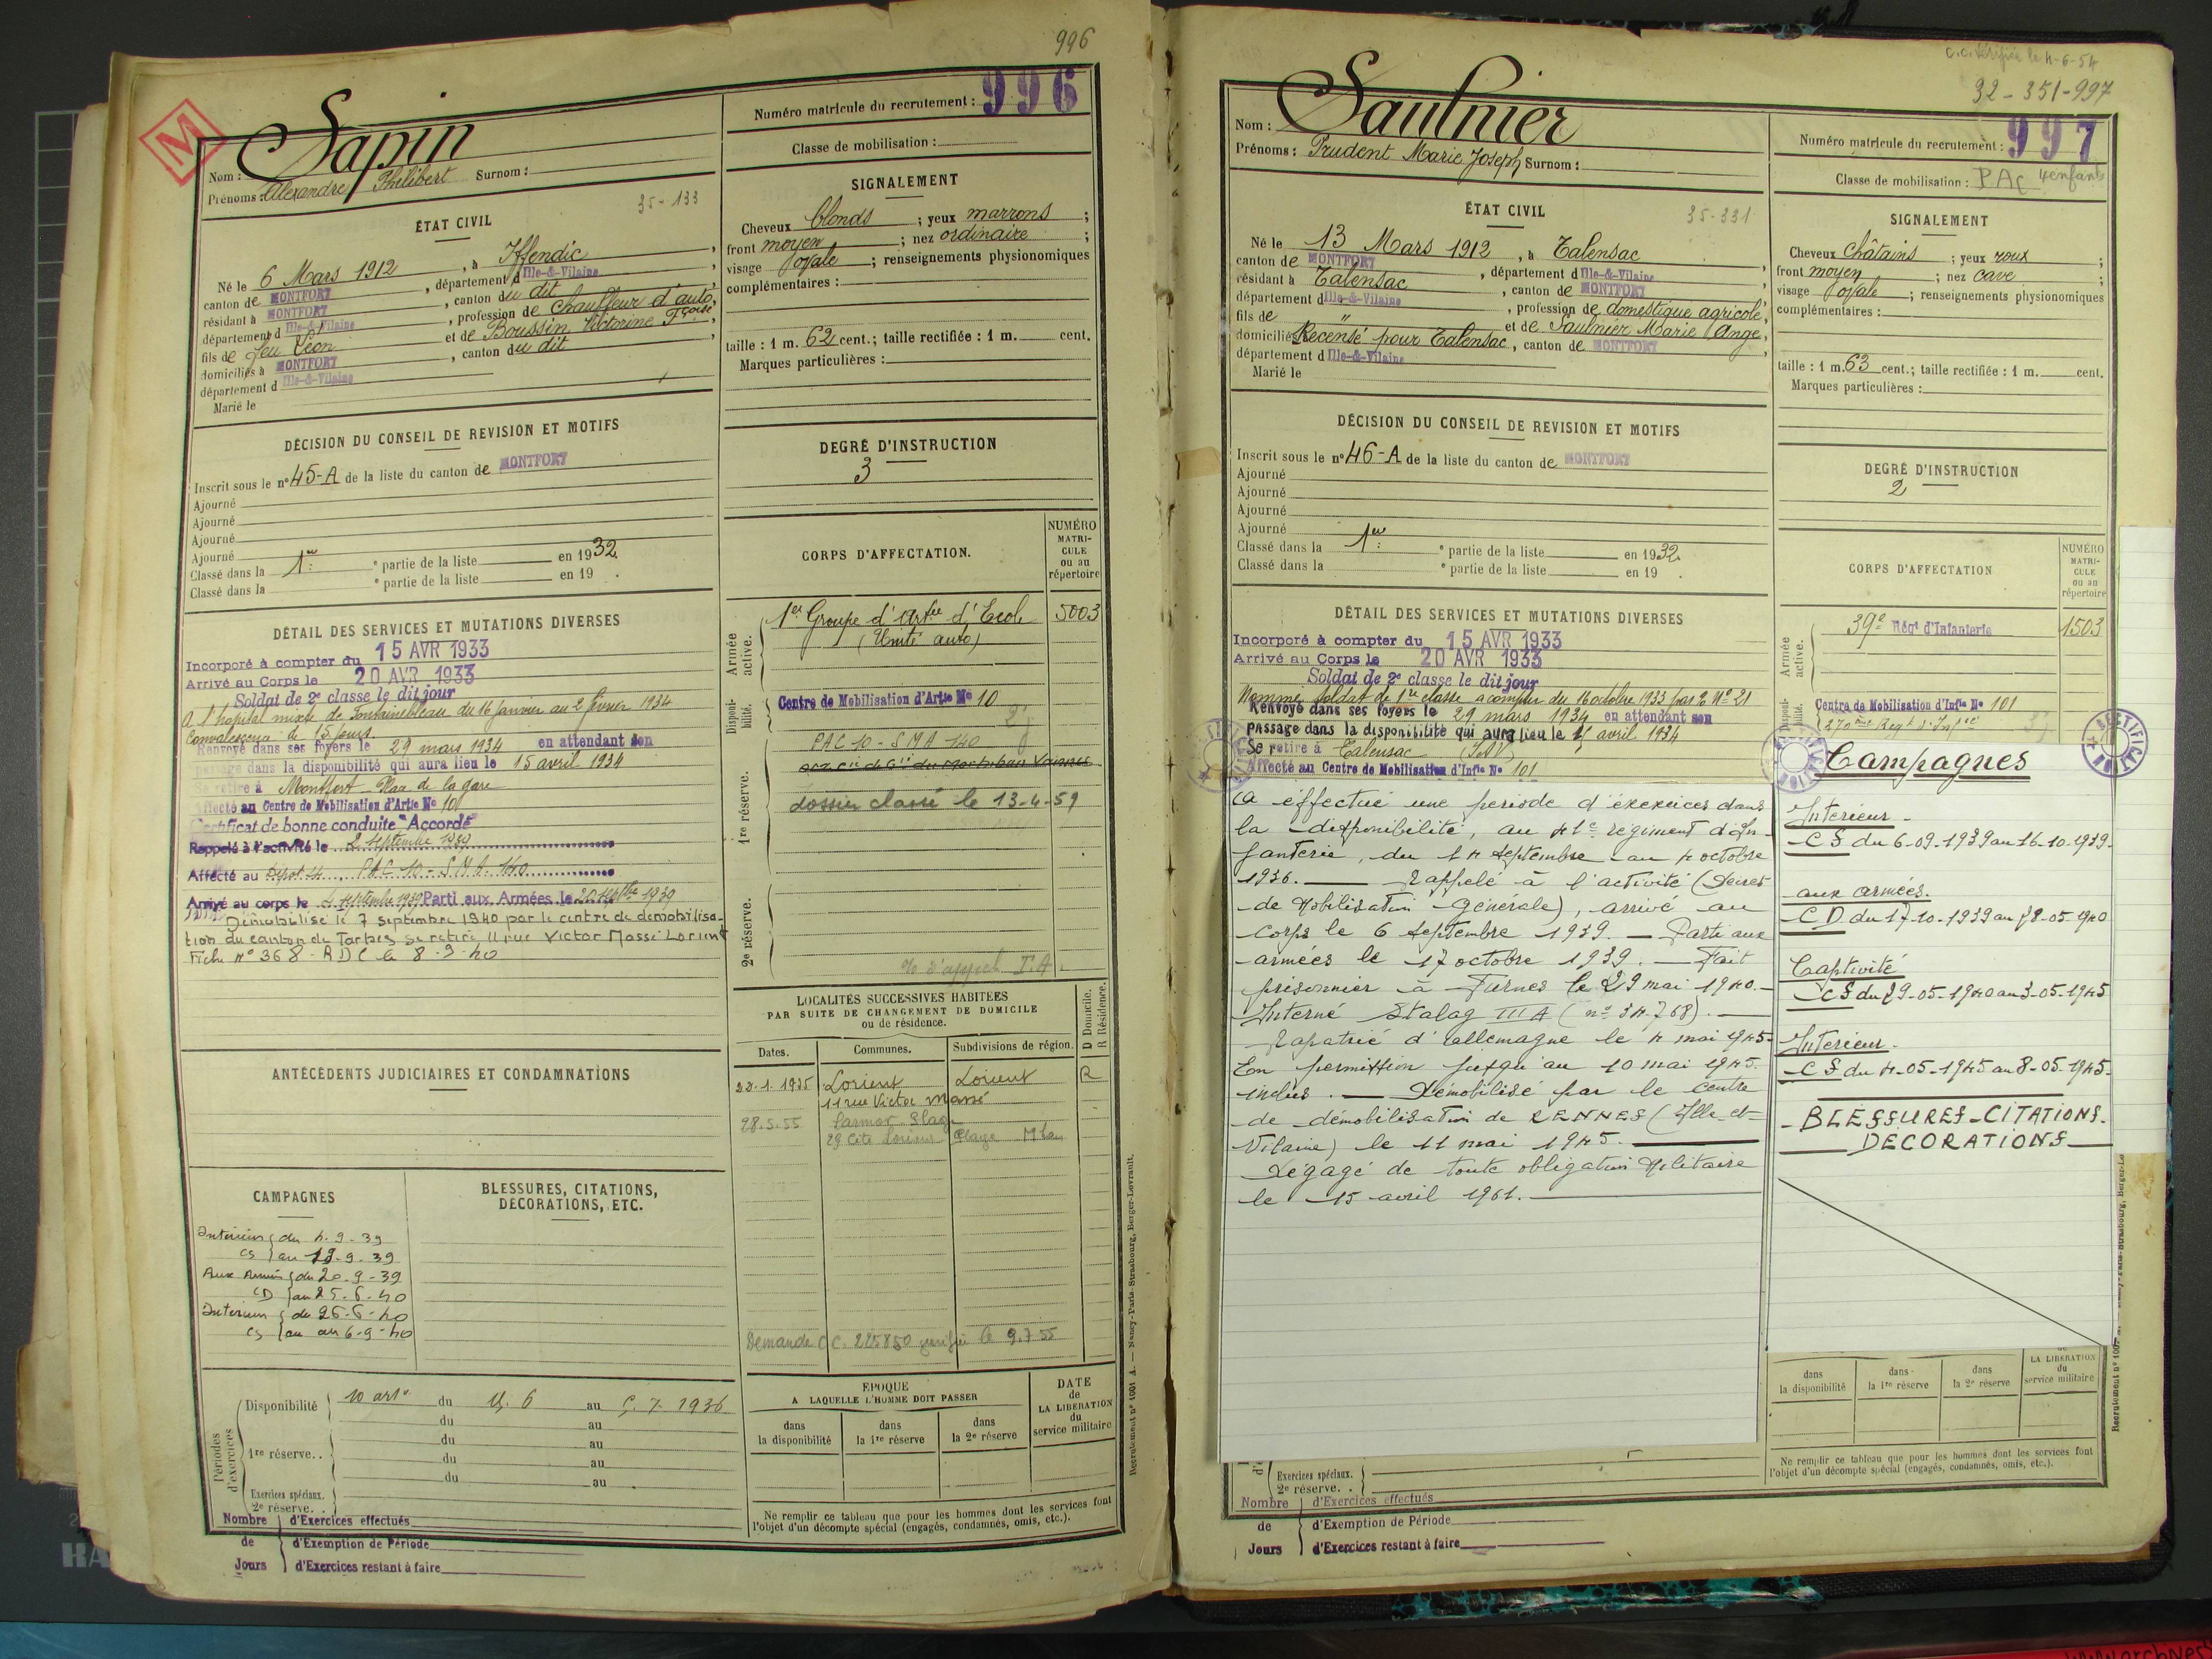 996
M
Nom : Sapin
Prénoms : Alexandre Philibert Surnom :
Numéro matricule du recrutement : 996
Classe de mobilisation :
35-133
ÉTAT CIVIL
Né le 6 Mars 1912, à Iffendic,
canton de MONTFORT, département d Ille-&-Vilaine,
résidant à MONTFORT, canton du dit
département d Ille-&-Vilaine, profession de Chauffeur d'auto,
fils de feu Léon et de Boussin Victorine Fçoise,
domiciliés à MONTFORT, canton du dit
département d Ille-&-Vilaine
Marié le
SIGNALEMENT
Cheveux blonds ; yeux marrons ;
front moyen ; nez ordinaire ;
visage ovale ; renseignements physionomiques
complémentaires :
taille : 1 m. 62 cent.; taille rectifiée : 1 m. cent.
Marques particulières :
DÉCISION DU CONSEIL DE REVISION ET MOTIFS
Inscrit sous le n° 45-A de la liste du canton de MONTFORT
Ajourné
Ajourné
Ajourné
Ajourné
Classé dans la 1re ° partie de la liste en 1932.
Classé dans la ° partie de la liste en 19 .
DEGRÉ D'INSTRUCTION
3
DÉTAIL DES SERVICES ET MUTATIONS DIVERSES
Incorporé à compter du 15 AVR 1933
Arrivé au Corps le 20 AVR 1933
Soldat de 2e classe le dit jour
A l'hôpital mixte de Fontainebleau du 16 janvier au 2 février 1934
Convalescence de 15 jours
Renvoyé dans ses foyers le 29 mars 1934 en attendant son
passage dans la disponibilité qui aura lieu le 15 avril 1934
Se retire à Montfort Place de la gare
Affecté au Centre de Mobilisation d'Artie No 10
Certificat de bonne conduite "Accordé"
Rappelé à l'activité le 2 septembre 1939
Affecté au Dépôt PAC 10 - SMA 140
Arrivé au corps le 4 septembre 1939 Parti aux Armées le 20 septbre 1939
Démobilisé le 7 septembre 1940 par le centre de démobilisa-
tion du canton de Tarbes se retire 11 rue Victor Massé Lorient
Fiche n° 368 - RDC le 8-9-40
CORPS D'AFFECTATION.
NUMÉRO MATRI-CULE ou au répertoire
Armée active.
1er Groupe d'Artie d'Ecole 5003
(Unité auto)
Disponi-bilité.
Centre de Mobilisation d'Artie No 10
PAC 10 - SMA 140
1re réserve.
dossier classé le 13-4-59
2e réserve.
LOCALITÉS SUCCESSIVES HABITÉES
PAR SUITE DE CHANGEMENT DE DOMICILE
ou de résidence.
D Domicile. R Résidence.
Dates. Communes. Subdivisions de région.
22.1.1935 Lorient Lorient R
11 rue Victor Massé
28.5.55 Larmor Plage
29 Cité Lorient Plage
Demande CC. 225850 le 9.7.55
ANTÉCÉDENTS JUDICIAIRES ET CONDAMNATIONS
CAMPAGNES
Intérieur du 4-9-39
CS au 19-9-39
Aux Armées du 20-9-39
CD au 25-6-40
Intérieur du 26-6-40
CS au 6-9-40
BLESSURES, CITATIONS,
DÉCORATIONS, ETC.
Périodes d'exercices
Disponibilité 10 arte du 15.6 au 5.7.1936
du au
1re réserve. . du au
du au
du au
Exercices spéciaux.
2e réserve. .
Nombre d'Exercices effectués
de d'Exemption de Période
Jours d'Exercices restant à faire
ÉPOQUE
A LAQUELLE L'HOMME DOIT PASSER
dans la disponibilité dans la 1re réserve dans la 2e réserve
DATE de LA LIBÉRATION du service militaire
Ne remplir ce tableau que pour les hommes dont les services font
l'objet d'un décompte spécial (engagés, condamnés, omis, etc.).
Recrutement n° 1001 A. — Nancy-Paris-Strasbourg, Berger-Levrault.
C.C. Vérifiée le 4-6-54
32-351-997
Nom : Saulnier
Prénoms : Prudent Marie Joseph Surnom :
Numéro matricule du recrutement : 997
Classe de mobilisation : PAC 4 enfants
35-331
ÉTAT CIVIL
Né le 13 Mars 1912, à Talensac,
canton de MONTFORT, département d Ille-&-Vilaine
résidant à Talensac, canton de MONTFORT
département d Ille-&-Vilaine, profession de domestique agricole,
fils de " et de Saulnier Marie Ange,
domiciliés Recensé pour Talensac, canton de MONTFORT
département d Ille-&-Vilaine
Marié le
SIGNALEMENT
Cheveux Châtains ; yeux roux ;
front moyen ; nez cave ;
visage ovale ; renseignements physionomiques
complémentaires :
taille : 1 m. 63 cent.; taille rectifiée : 1 m. cent.
Marques particulières :
DÉCISION DU CONSEIL DE REVISION ET MOTIFS
Inscrit sous le n° 46-A de la liste du canton de MONTFORT
Ajourné
Ajourné
Ajourné
Ajourné
Classé dans la 1re ° partie de la liste en 1932.
Classé dans la ° partie de la liste en 19 .
DEGRÉ D'INSTRUCTION
2
DÉTAIL DES SERVICES ET MUTATIONS DIVERSES
Incorporé à compter du 15 AVR 1933
Arrivé au Corps le 20 AVR 1933
Soldat de 2e classe le dit jour
Nommé Soldat de 1re classe à compter du 16 octobre 1933 N° 21
Renvoyé dans ses foyers le 29 mars 1934 en attendant son
passage dans la disponibilité qui aura lieu le 15 avril 1934
Se retire à Talensac (I&V)
Affecté au Centre de Mobilisation d'Infie No 101
A effectué une période d'exercices dans
la disponibilité, au 41e régiment d'In-
fanterie, du 14 septembre au 4 octobre
1936. — Rappelé à l'activité (Décret
de Mobilisation Générale), arrivé au
corps le 6 septembre 1939. — Parti aux
armées le 17 octobre 1939. — Fait
prisonnier à Furnes le 29 mai 1940. —
Interné Stalag III A (n° 34.768). —
Rapatrié d'Allemagne le 4 mai 1945.
En permission jusqu'au 10 mai 1945
inclus. — Démobilisé par le centre
de démobilisation de RENNES (Ille-et-
Vilaine) le 11 mai 1945. —
Dégagé de toute obligation Militaire
le 15 avril 1961. —
CORPS D'AFFECTATION
NUMÉRO MATRI-CULE ou au répertoire
Armée active.
39e Régt d'Infanterie 1503
Disponi-bilité.
Centre de Mobilisation d'Infie No 101
270ème Regt d'Infie
RECTIFICATION
Campagnes
Intérieur -
CS du 6-09-1939 au 16-10-1939.
aux armées.
CD du 17-10-1939 au 28-05-1940
Captivité
CS du 29-05-1940 au 3-05-1945
Intérieur -
CS du 4-05-1945 au 8-05-1945.
- BLESSURES - CITATIONS.
DECORATIONS
dans la disponibilité dans la 1re réserve dans la 2e réserve
LA LIBÉRATION du service militaire
Ne remplir ce tableau que pour les hommes dont les services font
l'objet d'un décompte spécial (engagés, condamnés, omis, etc.).
Exercices spéciaux.
2e réserve. .
Nombre d'Exercices effectués
de d'Exemption de Période
Jours d'Exercices restant à faire